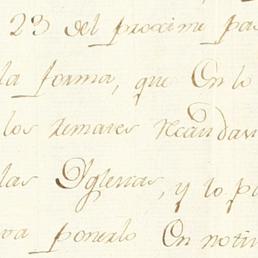 23 del proximo pas
la forma, que En lo
los lemares Recaudav
las Yglecias, y lo p
va ponerlo En noti